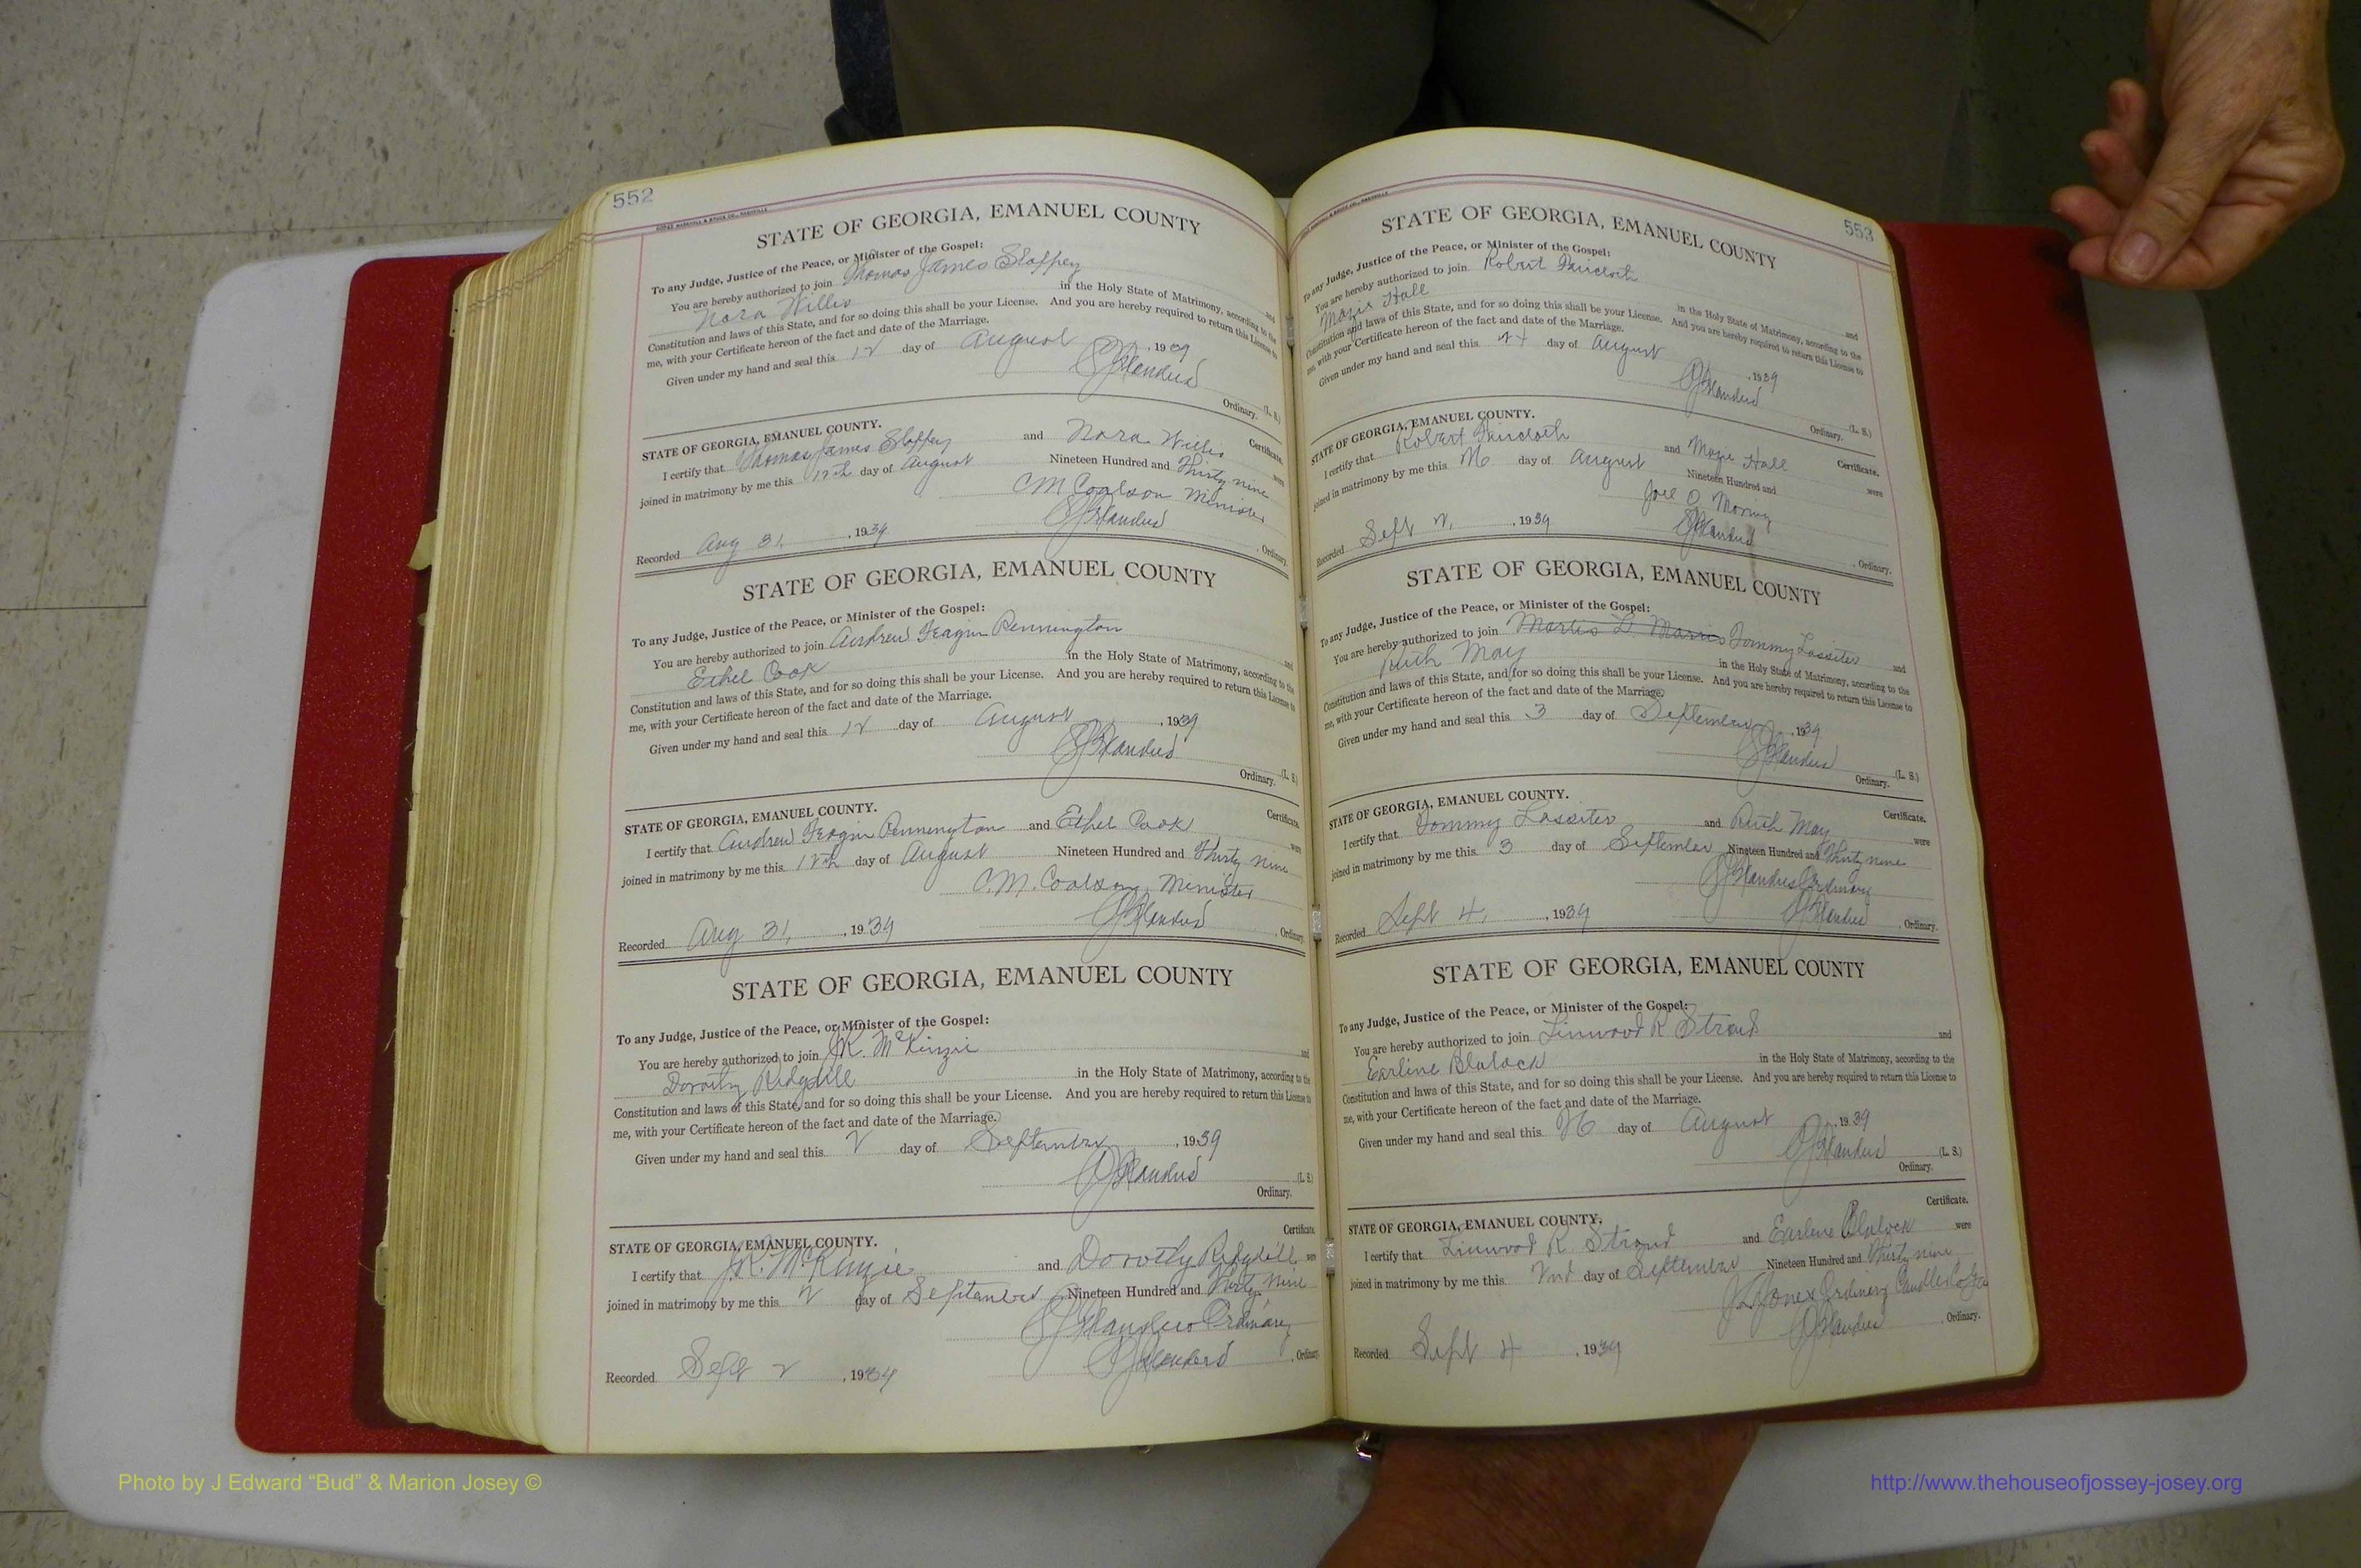 552
STATE OF GEORGIA, EMANUEL COUNTY
To any Judge, Justice of the Peace, or Minister of the Gospel:
You are hereby authorized to join Thomas James and
Nora Willis in the Holy State of Matrimony, according to the
Constitution and laws of this State, and for so doing this shall be your License. And you are hereby required to return this License to
me, with your Certificate hereon of the fact and date of the Marriage.
Given under my hand and seal this 12 day of August, 1939
(L. S.)
Ordinary.
STATE OF GEORGIA, EMANUEL COUNTY. Certificate.
I certify that Thomas James and Nora Willis were
joined in matrimony by me this 12th day of August Nineteen Hundred and Thirty nine
C M Coalson Minister
Recorded Aug 31, 1939 Ordinary.
STATE OF GEORGIA, EMANUEL COUNTY
To any Judge, Justice of the Peace, or Minister of the Gospel:
You are hereby authorized to join Andrew Feagin Pennington and
Ethel Cook in the Holy State of Matrimony, according to the
Constitution and laws of this State, and for so doing this shall be your License. And you are hereby required to return this License to
me, with your Certificate hereon of the fact and date of the Marriage.
Given under my hand and seal this 12 day of August, 1939
(L. S.)
Ordinary.
STATE OF GEORGIA, EMANUEL COUNTY. Certificate.
I certify that Andrew Feagin Pennington and Ethel Cook were
joined in matrimony by me this 12th day of August Nineteen Hundred and Thirty nine
C. M. Coalson, Minister
Recorded Aug 31, 1939 Ordinary.
STATE OF GEORGIA, EMANUEL COUNTY
To any Judge, Justice of the Peace, or Minister of the Gospel:
You are hereby authorized to join J.R. McKinzie and
Dorothy Ridgdill in the Holy State of Matrimony, according to the
Constitution and laws of this State, and for so doing this shall be your License. And you are hereby required to return this License to
me, with your Certificate hereon of the fact and date of the Marriage.
Given under my hand and seal this 2 day of September, 1939
(L. S.)
Ordinary.
Certificate.
STATE OF GEORGIA, EMANUEL COUNTY.
I certify that J.R. McKinzie and Dorothy Ridgdill were
joined in matrimony by me this 2 day of September Nineteen Hundred and Thirty nine
Ordinary
Recorded Sept 2, 1939 Ordinary.
553
STATE OF GEORGIA, EMANUEL COUNTY
To any Judge, Justice of the Peace, or Minister of the Gospel:
You are hereby authorized to join Robert Faircloth and
Mazie Hall in the Holy State of Matrimony, according to the
Constitution and laws of this State, and for so doing this shall be your License. And you are hereby required to return this License to
me, with your Certificate hereon of the fact and date of the Marriage.
Given under my hand and seal this day of August, 1939
(L. S.)
Ordinary.
STATE OF GEORGIA, EMANUEL COUNTY. Certificate.
I certify that Robert Faircloth and Mazie Hall were
joined in matrimony by me this 26 day of August Nineteen Hundred and
Joel O
Recorded Sept 2, 1939 Ordinary.
STATE OF GEORGIA, EMANUEL COUNTY
To any Judge, Justice of the Peace, or Minister of the Gospel:
You are hereby authorized to join Tommy Lassiter and
Ruth May in the Holy State of Matrimony, according to the
Constitution and laws of this State, and for so doing this shall be your License. And you are hereby required to return this License to
me, with your Certificate hereon of the fact and date of the Marriage.
Given under my hand and seal this 3 day of September, 1939
(L. S.)
Ordinary.
STATE OF GEORGIA, EMANUEL COUNTY. Certificate.
I certify that Tommy Lassiter and Ruth May were
joined in matrimony by me this 3 day of September Nineteen Hundred and Thirty nine
Ordinary
Recorded Sept 4, 1939 Ordinary.
STATE OF GEORGIA, EMANUEL COUNTY
To any Judge, Justice of the Peace, or Minister of the Gospel:
You are hereby authorized to join Linwood R Stroud and
Earline Blalock in the Holy State of Matrimony, according to the
Constitution and laws of this State, and for so doing this shall be your License. And you are hereby required to return this License to
me, with your Certificate hereon of the fact and date of the Marriage.
Given under my hand and seal this 26 day of August, 1939
(L. S.)
Ordinary.
Certificate.
STATE OF GEORGIA, EMANUEL COUNTY.
I certify that Linwood R. Stroud and Earlene Blalock were
joined in matrimony by me this 2nd day of September Nineteen Hundred and Thirty nine
Jones Ordinary Candler Co Ga
Recorded Sept 4, 1939 Ordinary.
Photo by J Edward “Bud” & Marion Josey ©
http://www.thehouseofjossey-josey.org